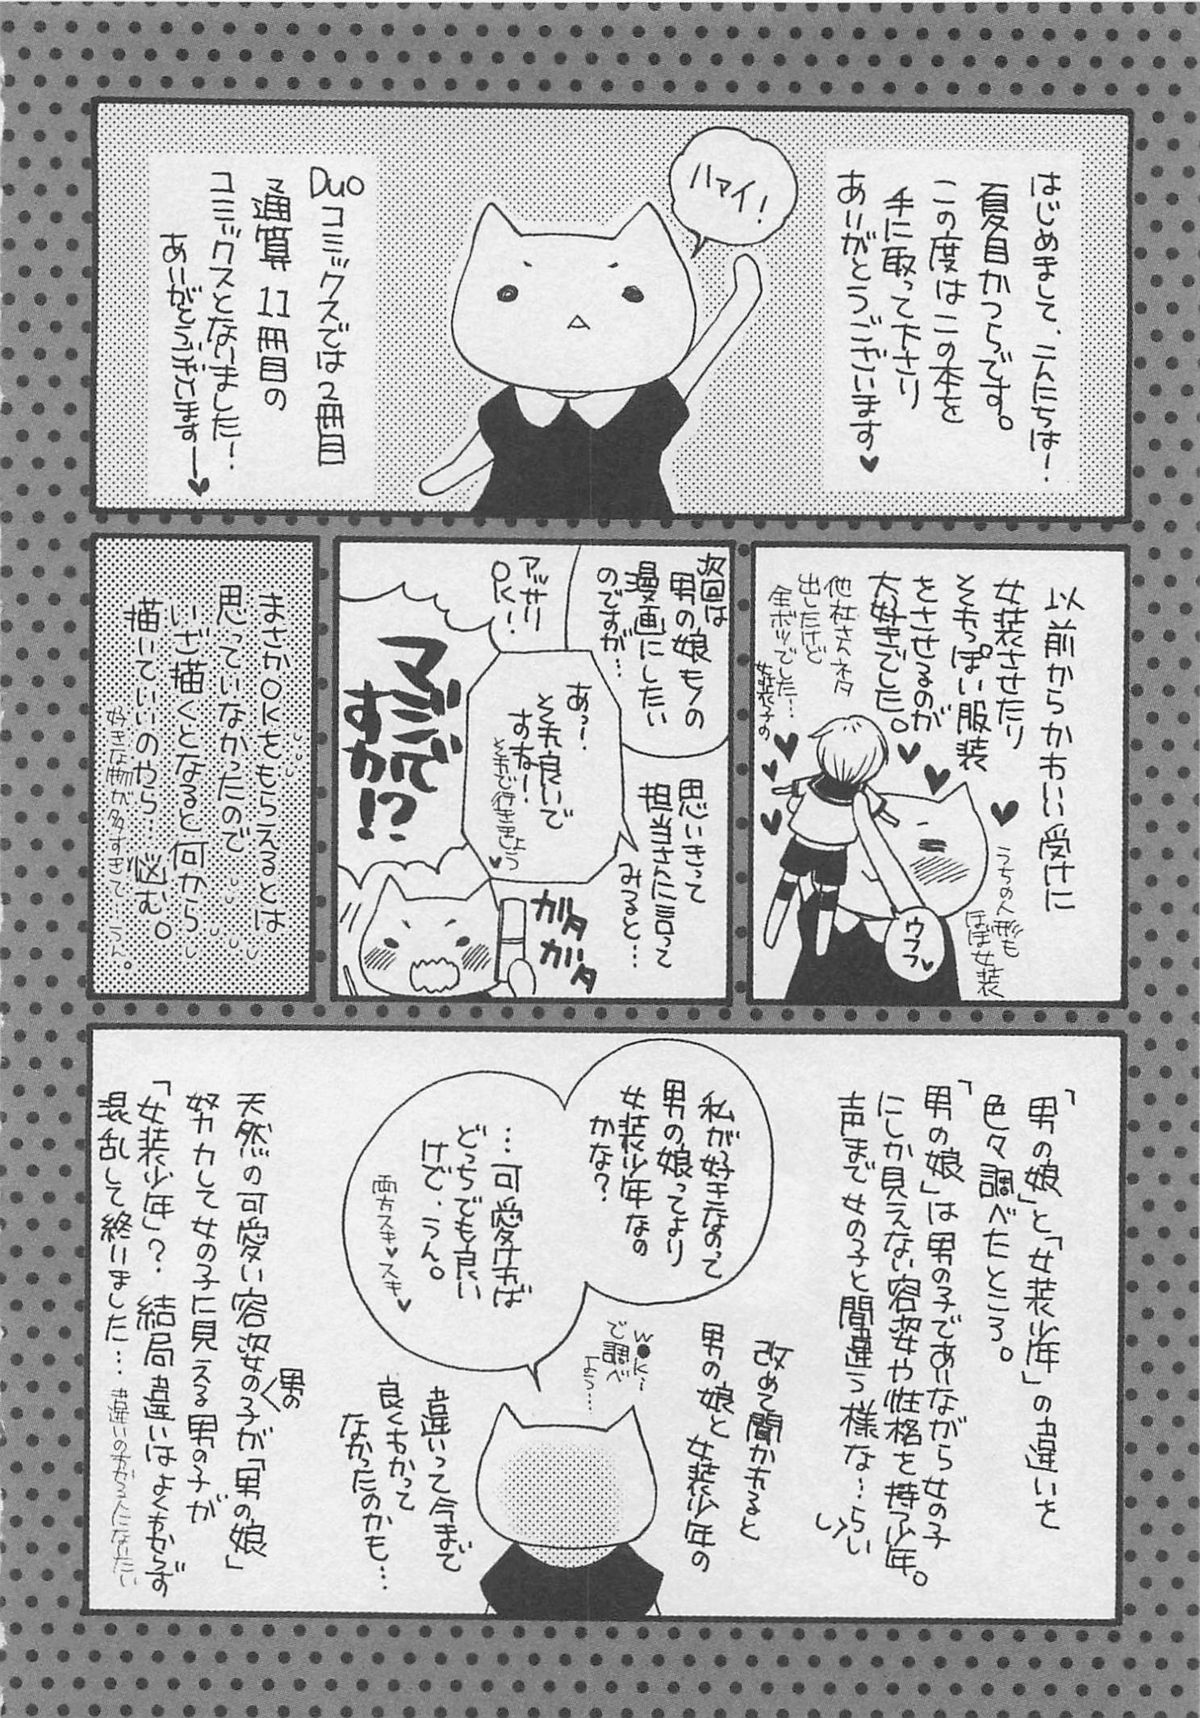 はじめまして、こんにちは！
夏目かつらです。
この度はこの本を
手に取って下さり
ありがとうございます♥
ハァイ！
Duoコミックスでは2冊目
通算11冊目の
コミックスとなりました！
ありがとうございますー♥
以前からかわいい受けに
女装させたり
それっぽい服装
をさせるのが
大好きでした。
他社さんネタ
出したけど
全ボツでした…
女装子の
うちの人形も
ほぼ女装
ウフフ♥
次回は
男の娘もの
漫画にしたい
のですが…
思いきって
担当さんに言って
みると…
あっ、
それ良いで
すね！
それで行きましょう♥
アッサリ
OK！
マジで
すか!?
ガタガタ
まさかOKをもらえるとは
思っていなかったので
いざ描くとなると何から
描いていいのやら…悩む。
好きな物が多すぎて…うん。
「男の娘」と「女装少年」の違いを
色々調べたところ。
「男の娘」は男の子でありながら女の子
にしか見えない容姿や性格を持つ少年。
声まで女の子と間違う様な…らしい
改めて聞かれると
男の娘と女装少年の
違いって今まで
良くわかって
なかったのかも…
w●k…
で調べ
よう…
私が好きなのって
男の娘ってより
女装少年なの
かな？
…可愛ければ
どっちでも良い
けど、うん。
両方スキ♥スキ♥
天然の可愛い容姿の男の子が「男の娘」
努力して女の子に見える男の子が
「女装少年」？結局違いはよくわからず
混乱して終りました…
違いのわかる人になりたい